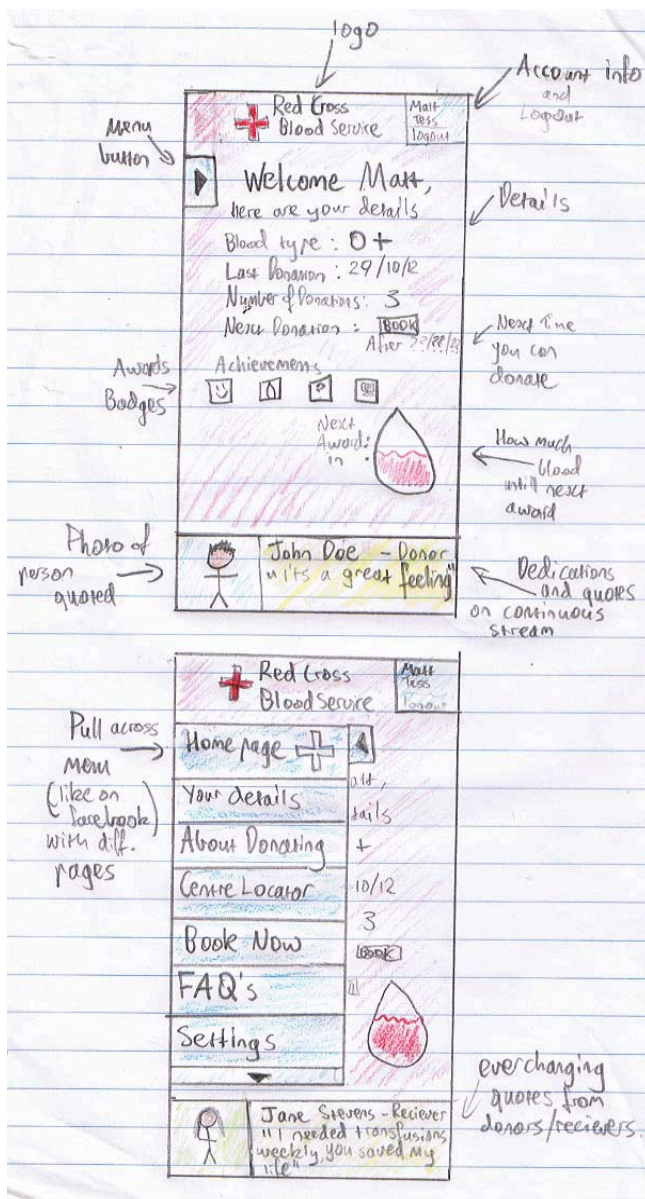 logo
Account info
and
Logout
Menu
button
Red Cross
Blood Service
Matt
Tess
logout
Welcome Matt,
Here are your details
Details
Blood type : O+
Last Donation : 29/10/12
Number of Donations: 3
Next Donation : BOOK
After ??/??/??
Next time
you can
donate
Awards
Badges
Achievements
Next
Award:
in :
How much
blood
intill next
award
Photo of
person
quoted
John Doe - Donor
"its a great feeling"
Dedications
and quotes
on continuous
stream
Red Cross
Blood Service
Matt
Tess
Logout
Pull across
menu
(like on
facebook)
with diff.
pages
Home page
Your details
About Donating
Centre Locator
Book Now
FAQ's
Settings
att,
tails
+
10/12
3
BOOK
Jane Stevens - Reciever
"I needed transfusions
weekly, you saved my
life"
everchanging
quotes from
donors/recievers